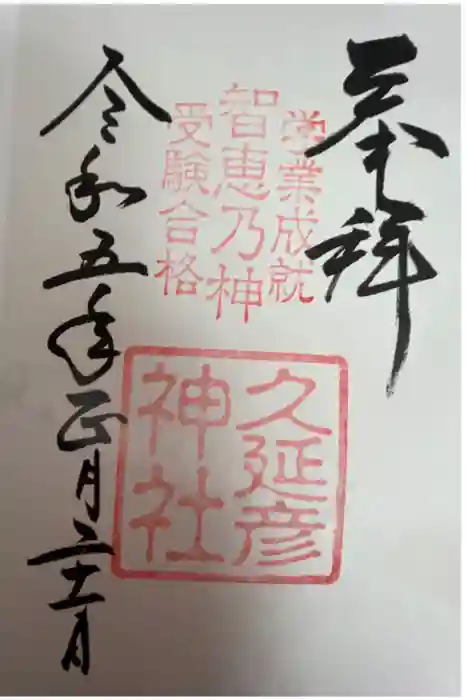 奉拝
学業成就
智恵乃神
受験合格
久延彦
神社
令和五年正月二十一日